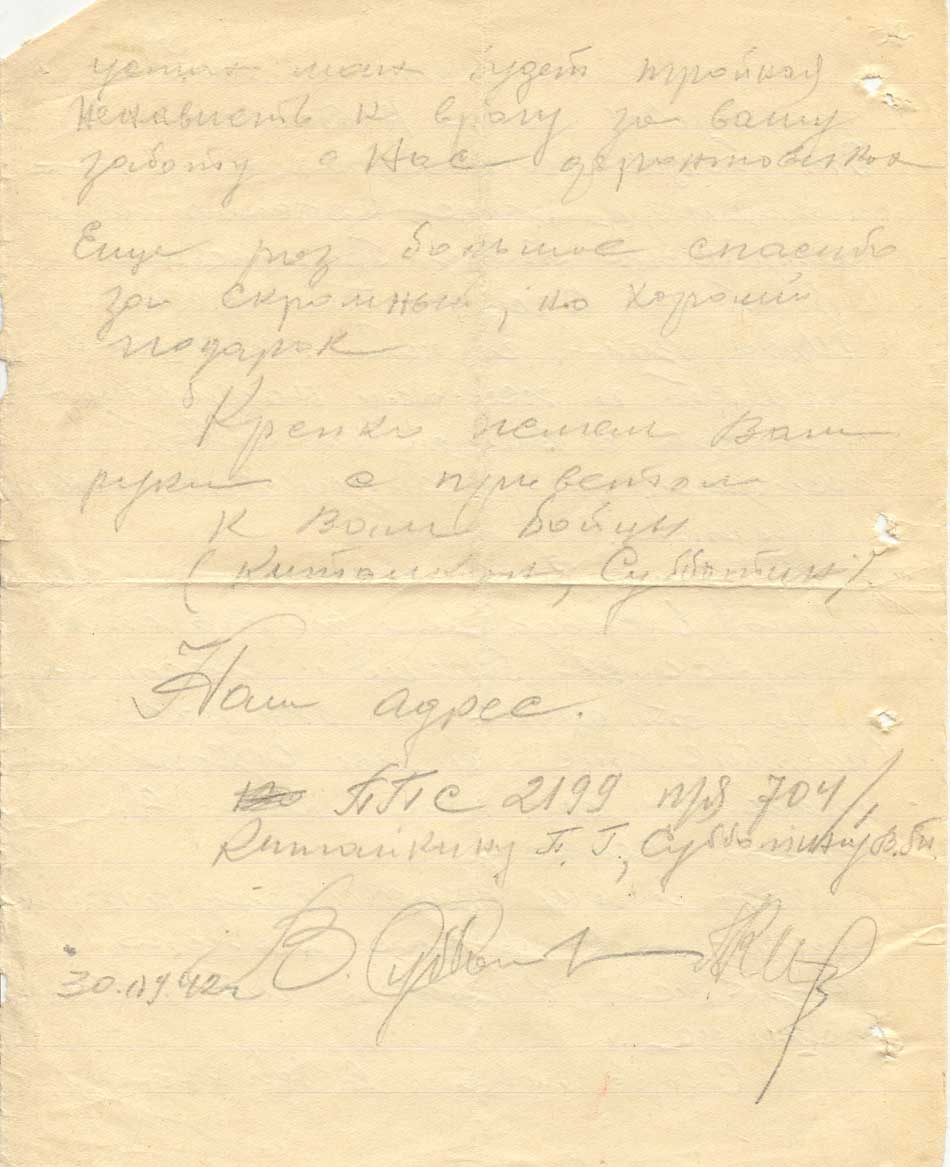 будет тройная
Ненависть к врагу за вашу
заботу о Нас
Еще раз большое спасибо
за скромный, но хороший
подарок
Крепко жмем Ваши
руки с приветом
к Вам бойцы
(Китайкин, Субботин).
Наш адрес.
ППС 2199 п/я 704/
Китайкину П. Г., Субботину В.
В. Субботин
30.IV.42г